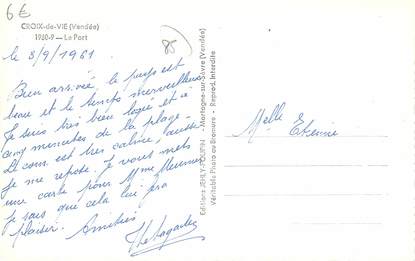 6€
CROIX-de-VIE (Vendée)
1980-9 — Le Port
85
le 3/9/1961
Bien arrivée, le pays est
beau et le temps merveilleux
Je suis très bien logée et à
cinq minutes de la plage.
Le coin est très calme, aussi
je me repose. Je vous mets
une carte pour Mme
je sais que cela lui fera
plaisir. Amitiés
Editions JEHLY-POUPIN - Mortagne-sur-Sèvre (Vendée)
Véritable Photo au Bromure - Reprod. Interdite
Melle Etienne